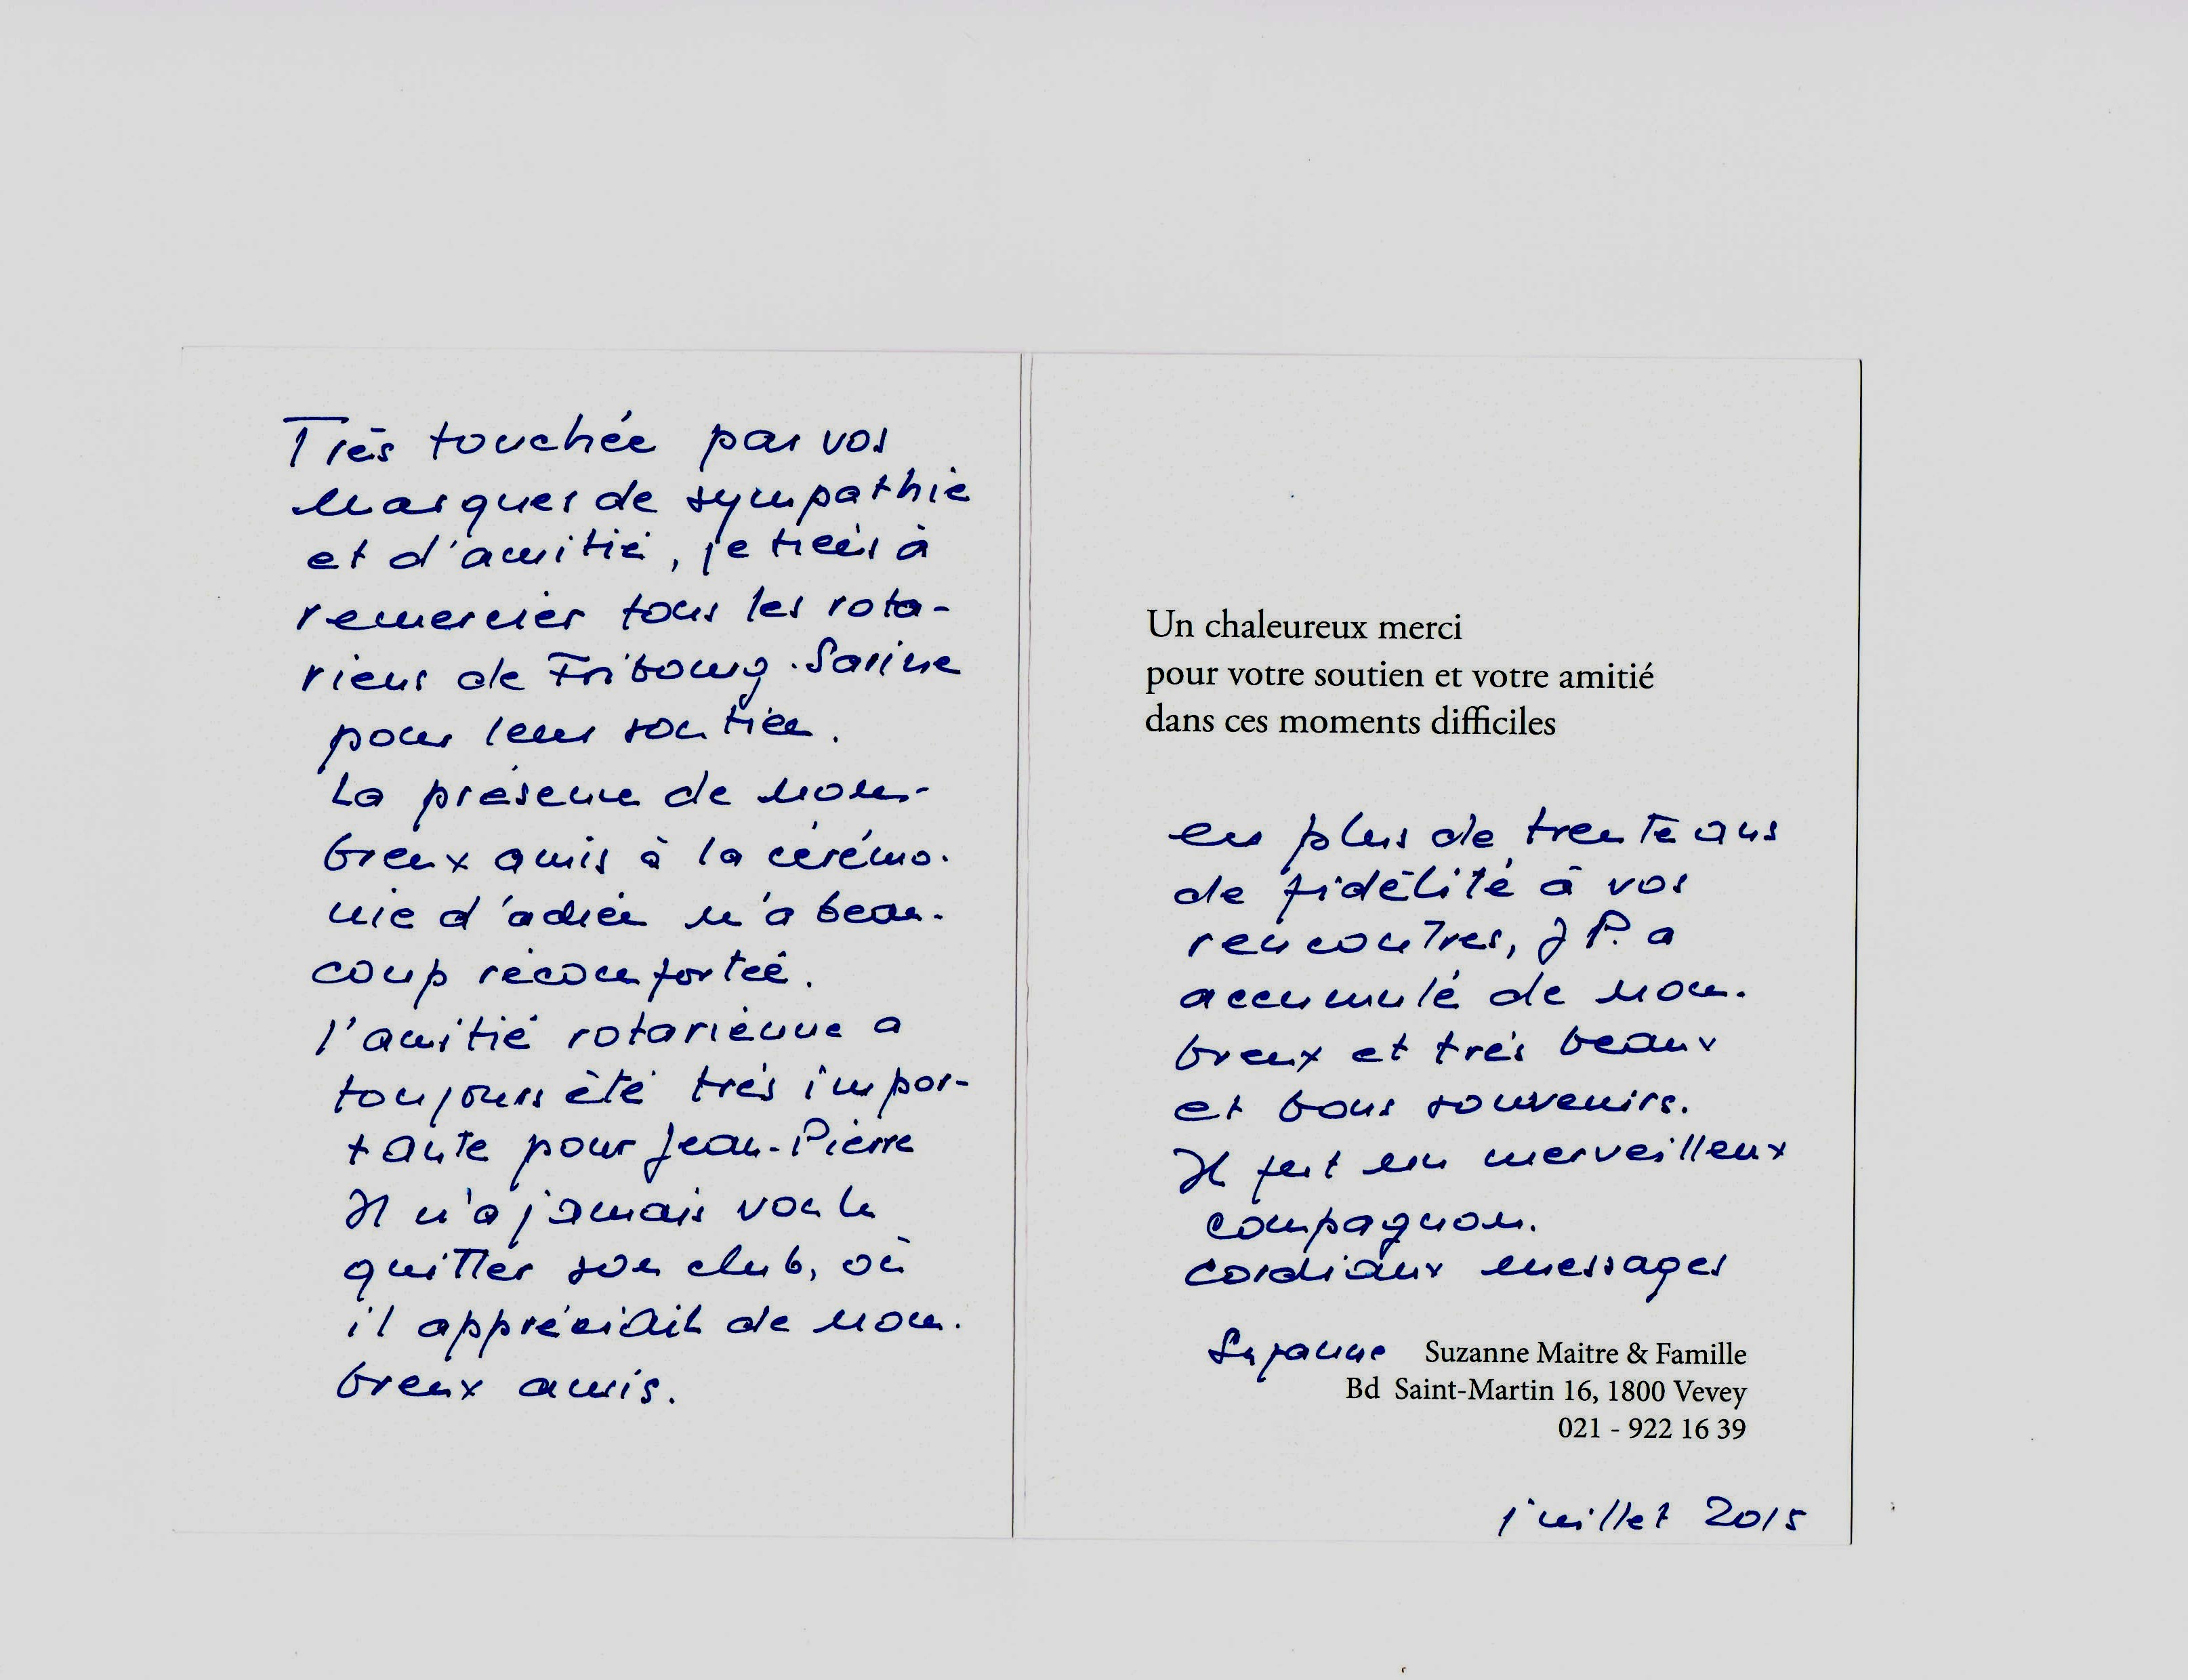 Très touchée par vos
marques de sympathie
et d'amitié, je tiens à
remercier tous les rota-
riens de Fribourg-Sarine
pour leur soutien.
La présence de nom-
breux amis à la cérémo-
nie d'adieu m'a beau-
coup réconfortée.
l'amitié rotarienne a
toujours été très impor-
tante pour Jean-Pierre
Il n'a jamais voulu
quitter son club, où
il appréciait de nom-
breux amis.
Un chaleureux merci
pour votre soutien et votre amitié
dans ces moments difficiles
en plus de trente ans
de fidélité à vos
rencontres, J P. a
accumulé de nom-
breux et très beaux
et bons souvenirs.
Il fut un merveilleux
compagnon.
Cordiaux messages
Suzanne Suzanne Maitre & Famille
Bd Saint-Martin 16, 1800 Vevey
021 - 922 16 39
juillet 2015